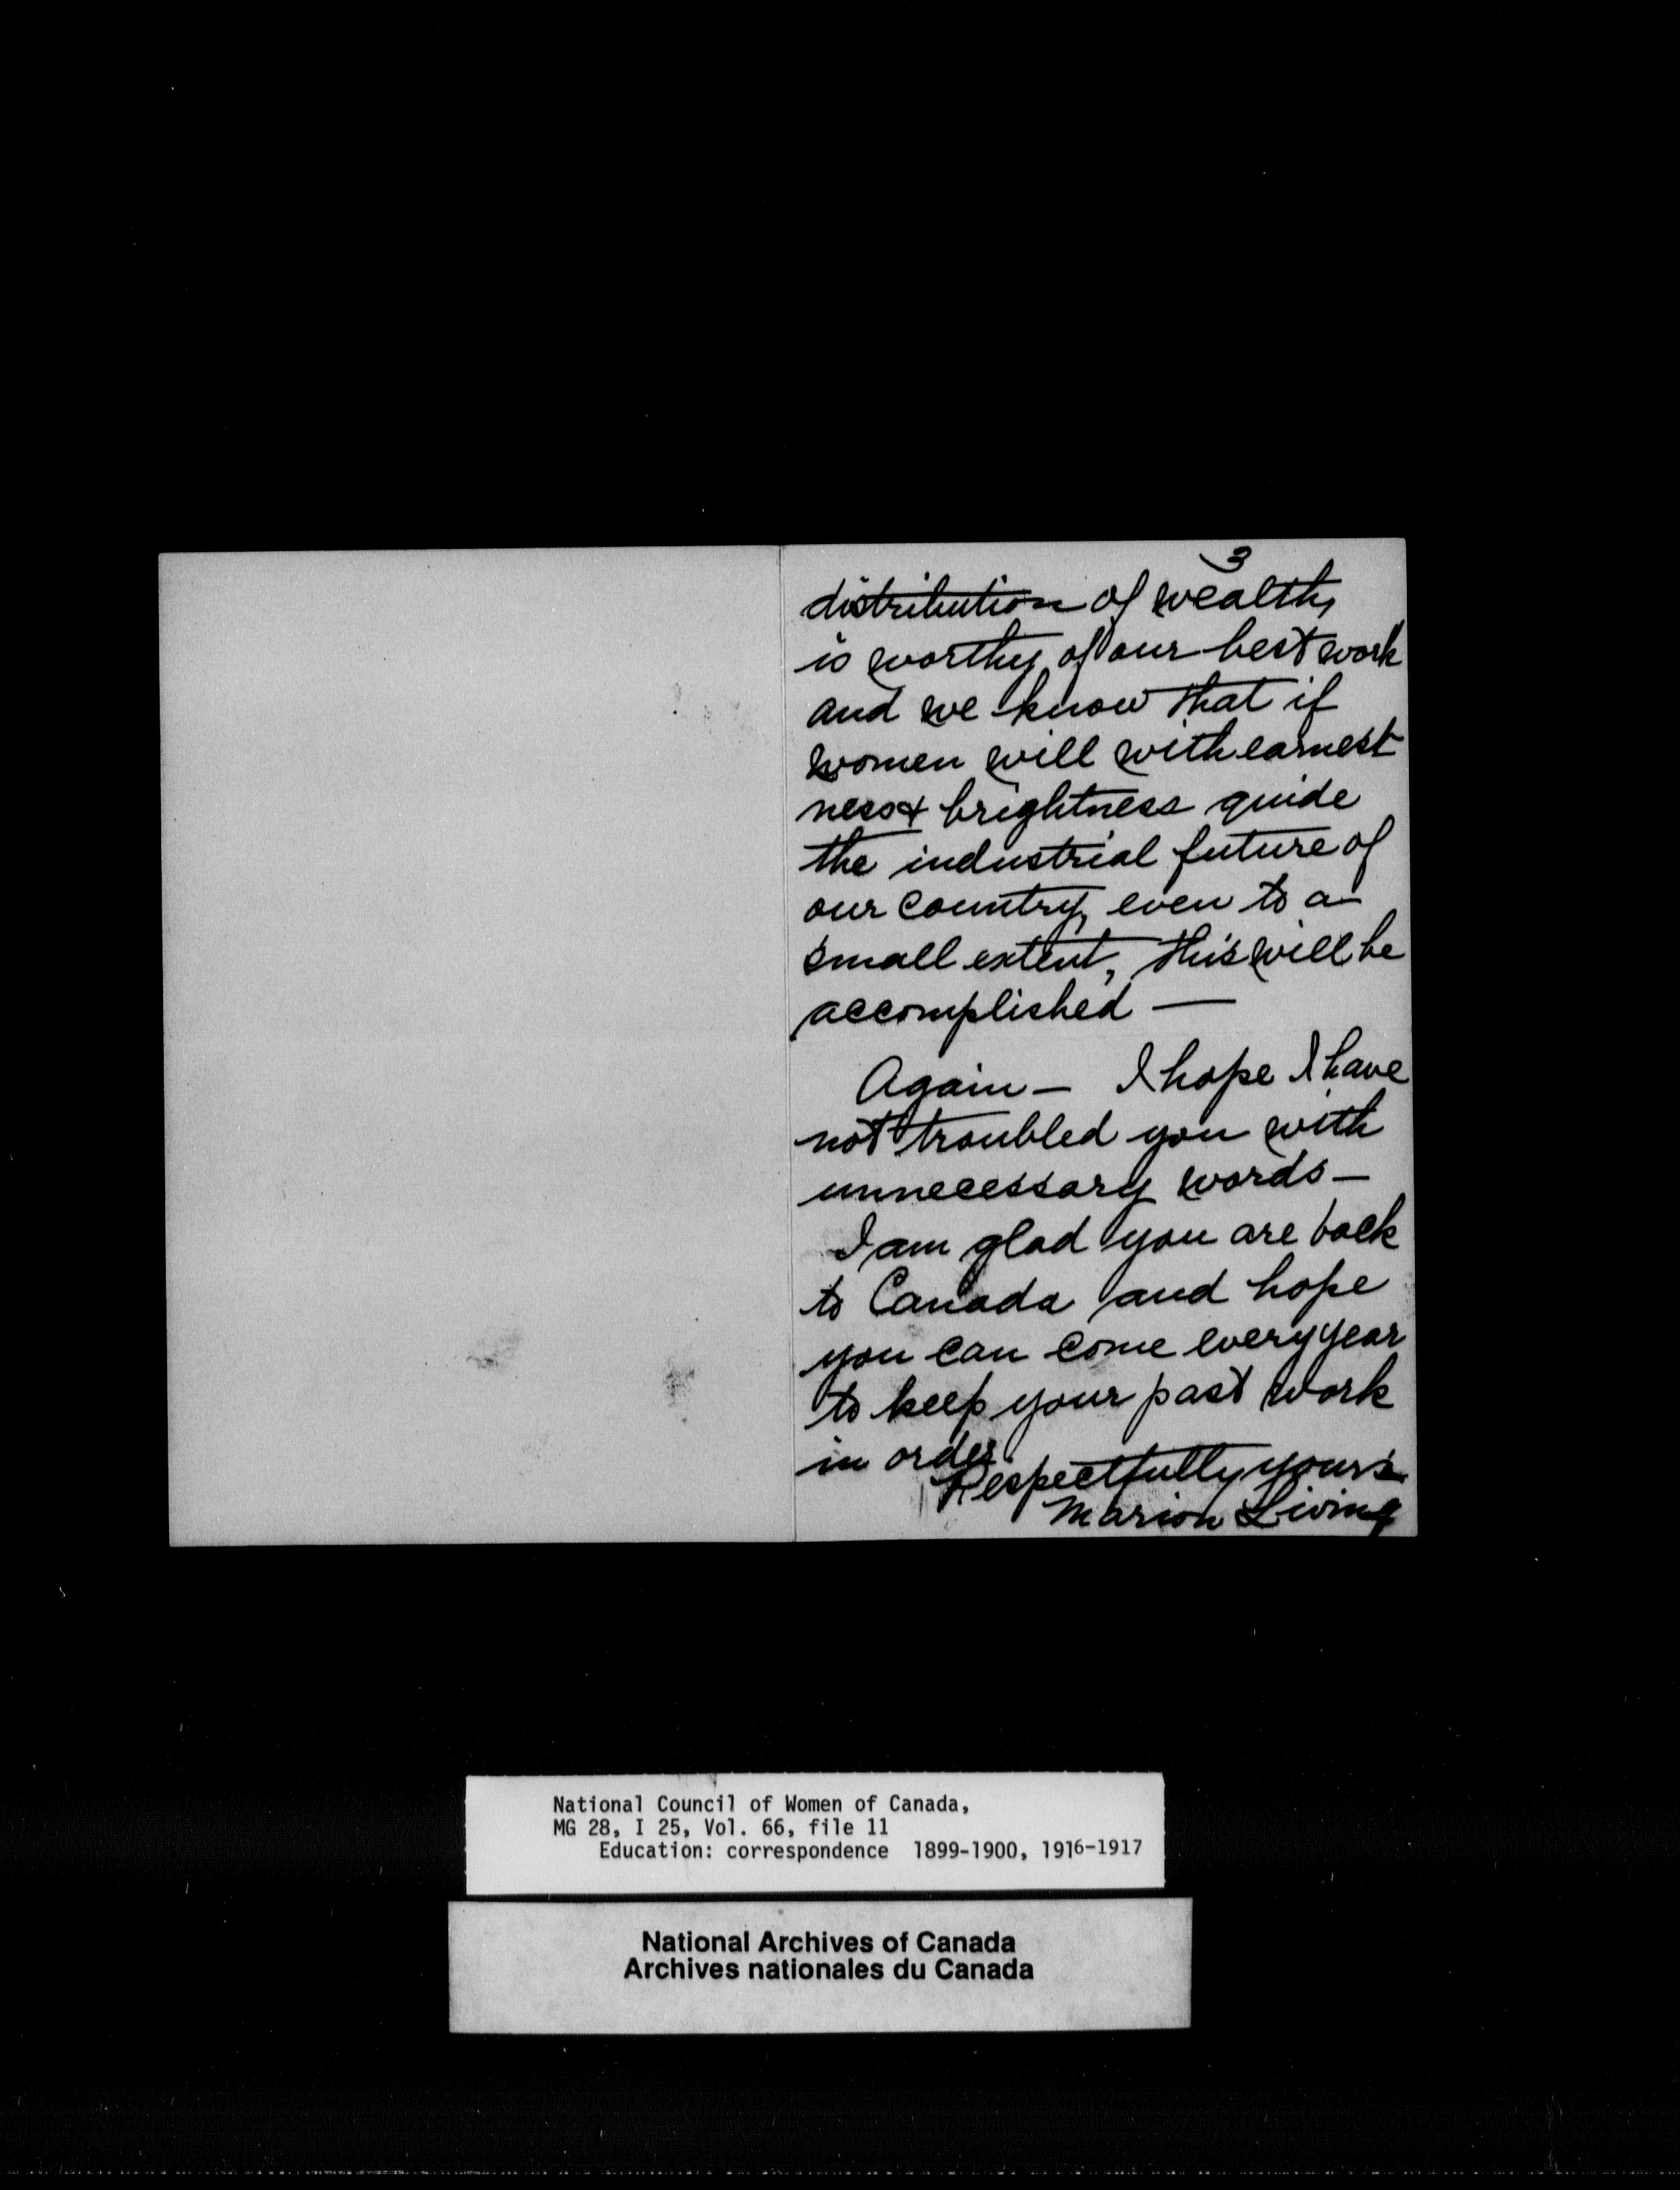 3
distribution of wealth,
is worthy of our best work
and we know that if
women will with earnest
ness & brightness guide
the industrial future of
our country, even to a
small extent, this will be
accomplished —
Again — I hope I have
not troubled you with
unnecessary words —
I am glad you are back
to Canada and hope
you can come every year
to keep your past work
in order.
Respectfully yours
Marion Living
National Council of Women of Canada,
MG 28, I 25, Vol. 66, file 11
Education: correspondence 1899-1900, 1916-1917
National Archives of Canada
Archives nationales du Canada